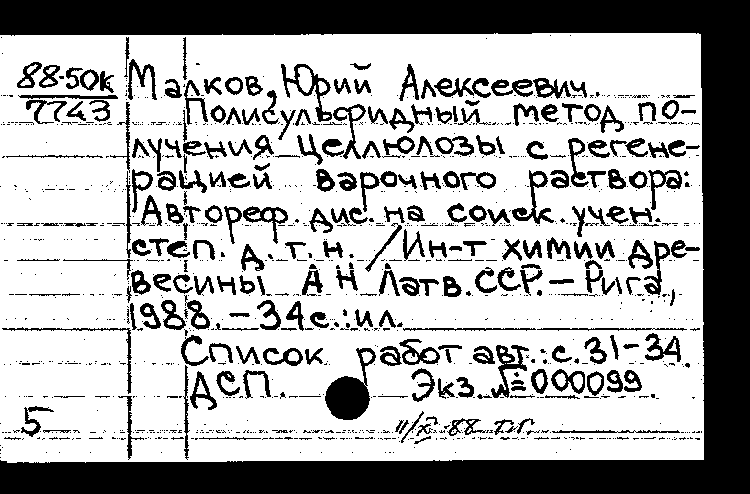 88-50к Малков, Юрий Алексеевич.
7743 Полисульфидный метод по-
лучения целлюлозы с регене-
рацией варочного раствора:
Автореф. дис. на соиск. учен.
степ. д. т. н. / Ин-т химии дре-
весины АН Латв. ССР. – Рига,
1988. – 34 с. : ил.
Список работ авт.: с. 31-34.
ДСП. Экз. № 000099.
5
11/X-88